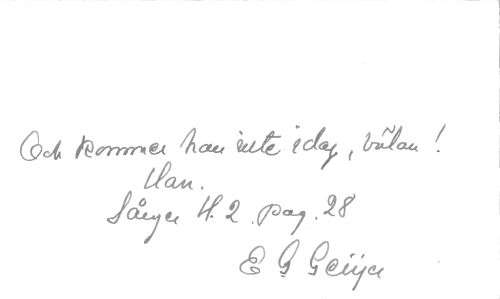 Och kommer han inte idag, välan!
Han.
Sånger H. 2. pag. 28
E G Geijer